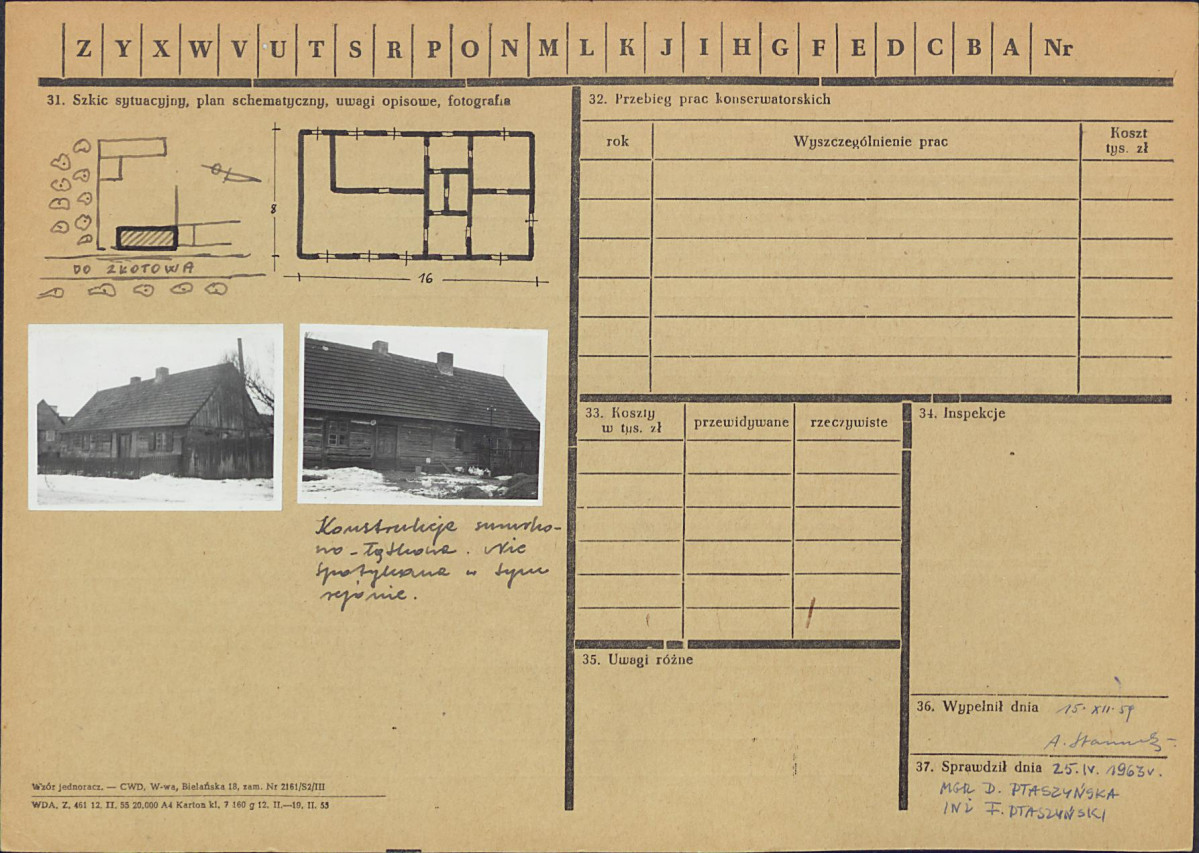 Z Y X W V U T S R P O N M L K J I H G F E D C B A Nr
31. Szkic sytuacyjny, plan schematyczny, uwagi opisowe, fotografia
8
DO ZŁOTOWA
16
Konstrukcja sumiko-
wo-łątkowa. Nie
spotykana w tym
rejonie.
Wzór jednoracz. — CWD, W-wa, Bielańska 18, zam. Nr 2161/S2/III
WDA. Z. 461 12. II. 55 20.000 A4 Karton kl. 7 160 g 12. II.—19. II. 55
32. Przebieg prac konserwatorskich
rok
Wyszczególnienie prac
Koszt
tys. zł
33. Koszty
w tys. zł
przewidywane
rzeczywiste
34. Inspekcje
35. Uwagi różne
36. Wypełnił dnia 15. XII. 59
A.
37. Sprawdził dnia 25. IV. 1963 r.
MGR D. PTASZYŃSKA
INŻ F. PTASZYŃSKI